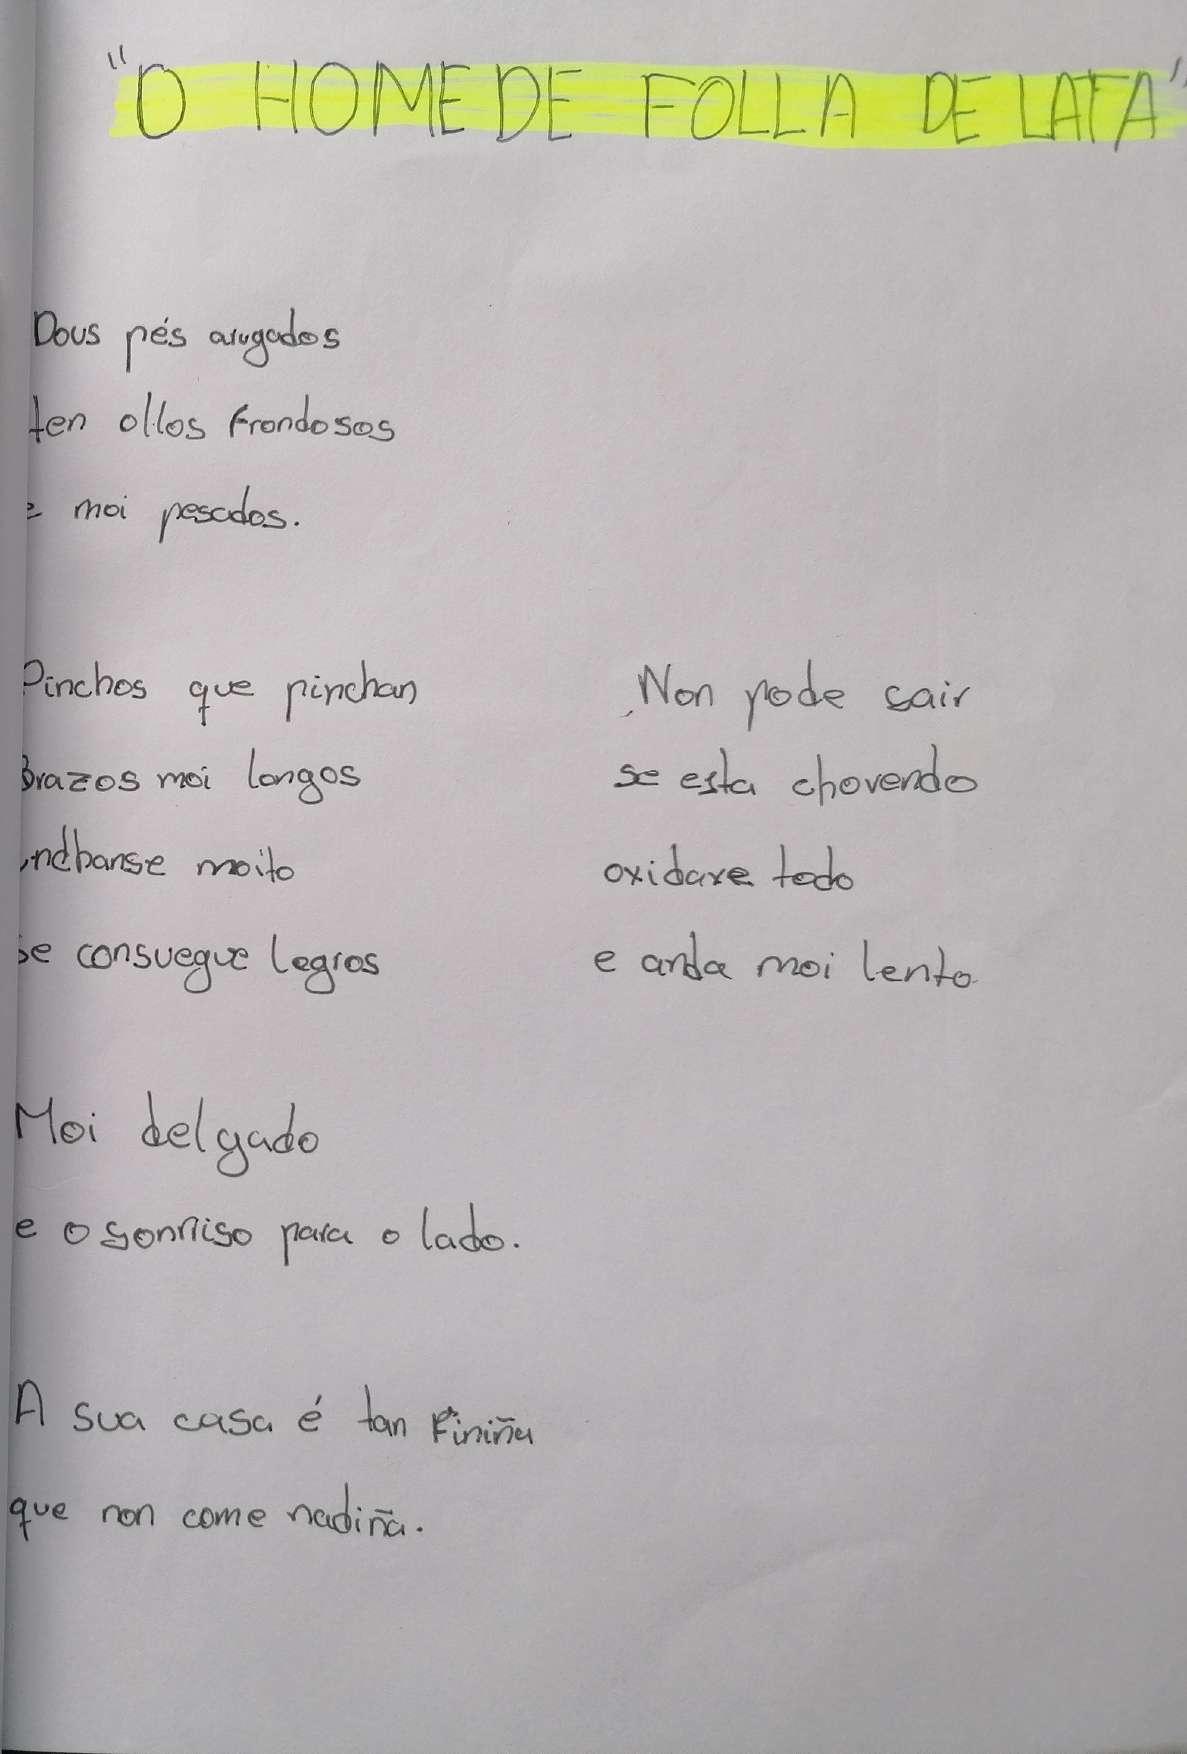 "O HOME DE FOLLA DE LATA"
Dous pés arugados
ten ollos frondosos
e moi pesados.
Pinchos que pinchan
Brazos moi longos
moito
se consuegue logros
Moi delgado
e o sonriso para o lado.
A sua casa é tan finiña
que non come nadiña.
Non pode sair
se esta chovendo
oxidaxe todo
e anda moi lento